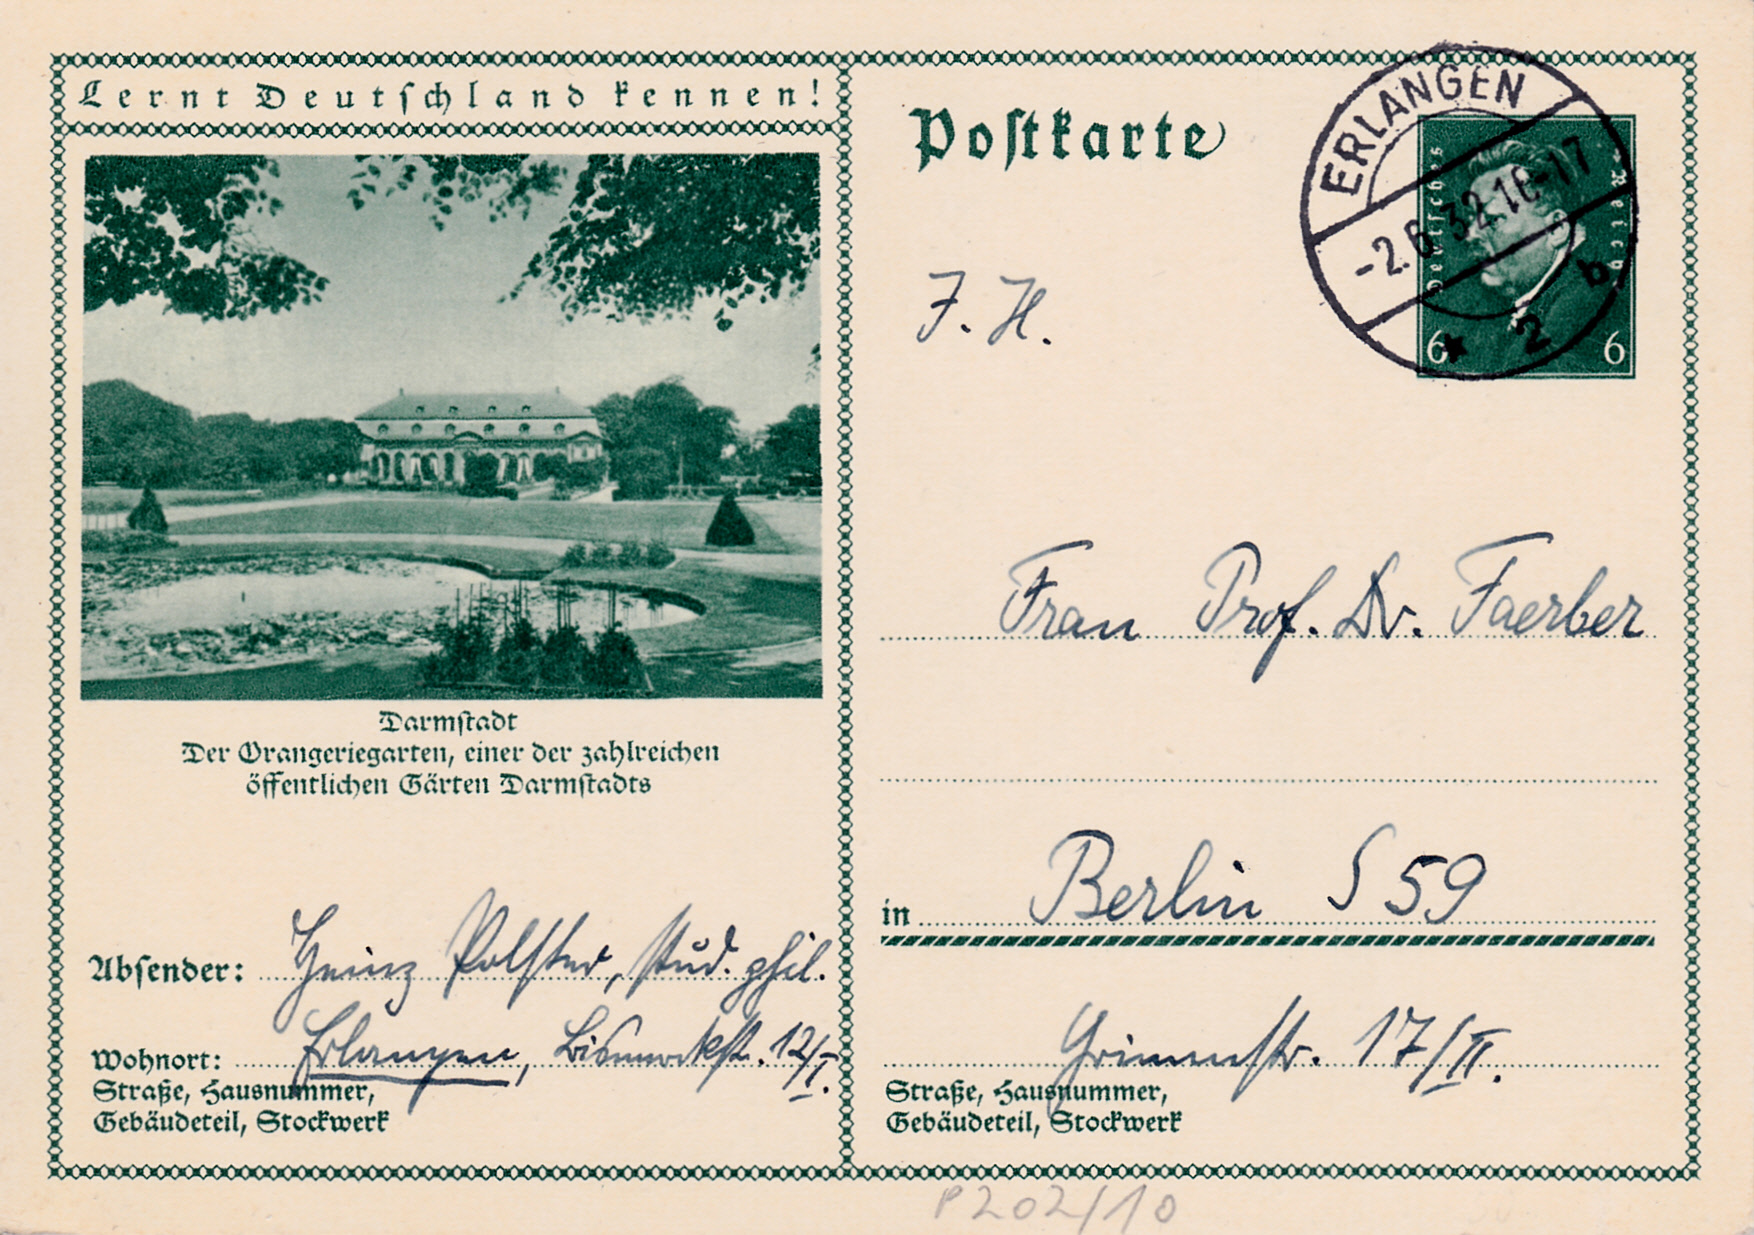 Lernt Deutschland kennen!
Darmstadt
Der Orangeriegarten, einer der zahlreichen
öffentlichen Gärten Darmstadts
Absender: Heinz Polster, stud. phil.
Wohnort: Erlangen, Bismarckstr. 12/I.
Straße, Hausnummer,
Gebäudeteil, Stockwerk
Postkarte
ERLANGEN
-2.6.32.16-17
* 2 b
Deutsches Reich
6 6
J. H.
Frau Prof. Dr. Faerber
in Berlin S 59
Grimmstr. 17/II.
Straße, Hausnummer,
Gebäudeteil, Stockwerk
P202/10